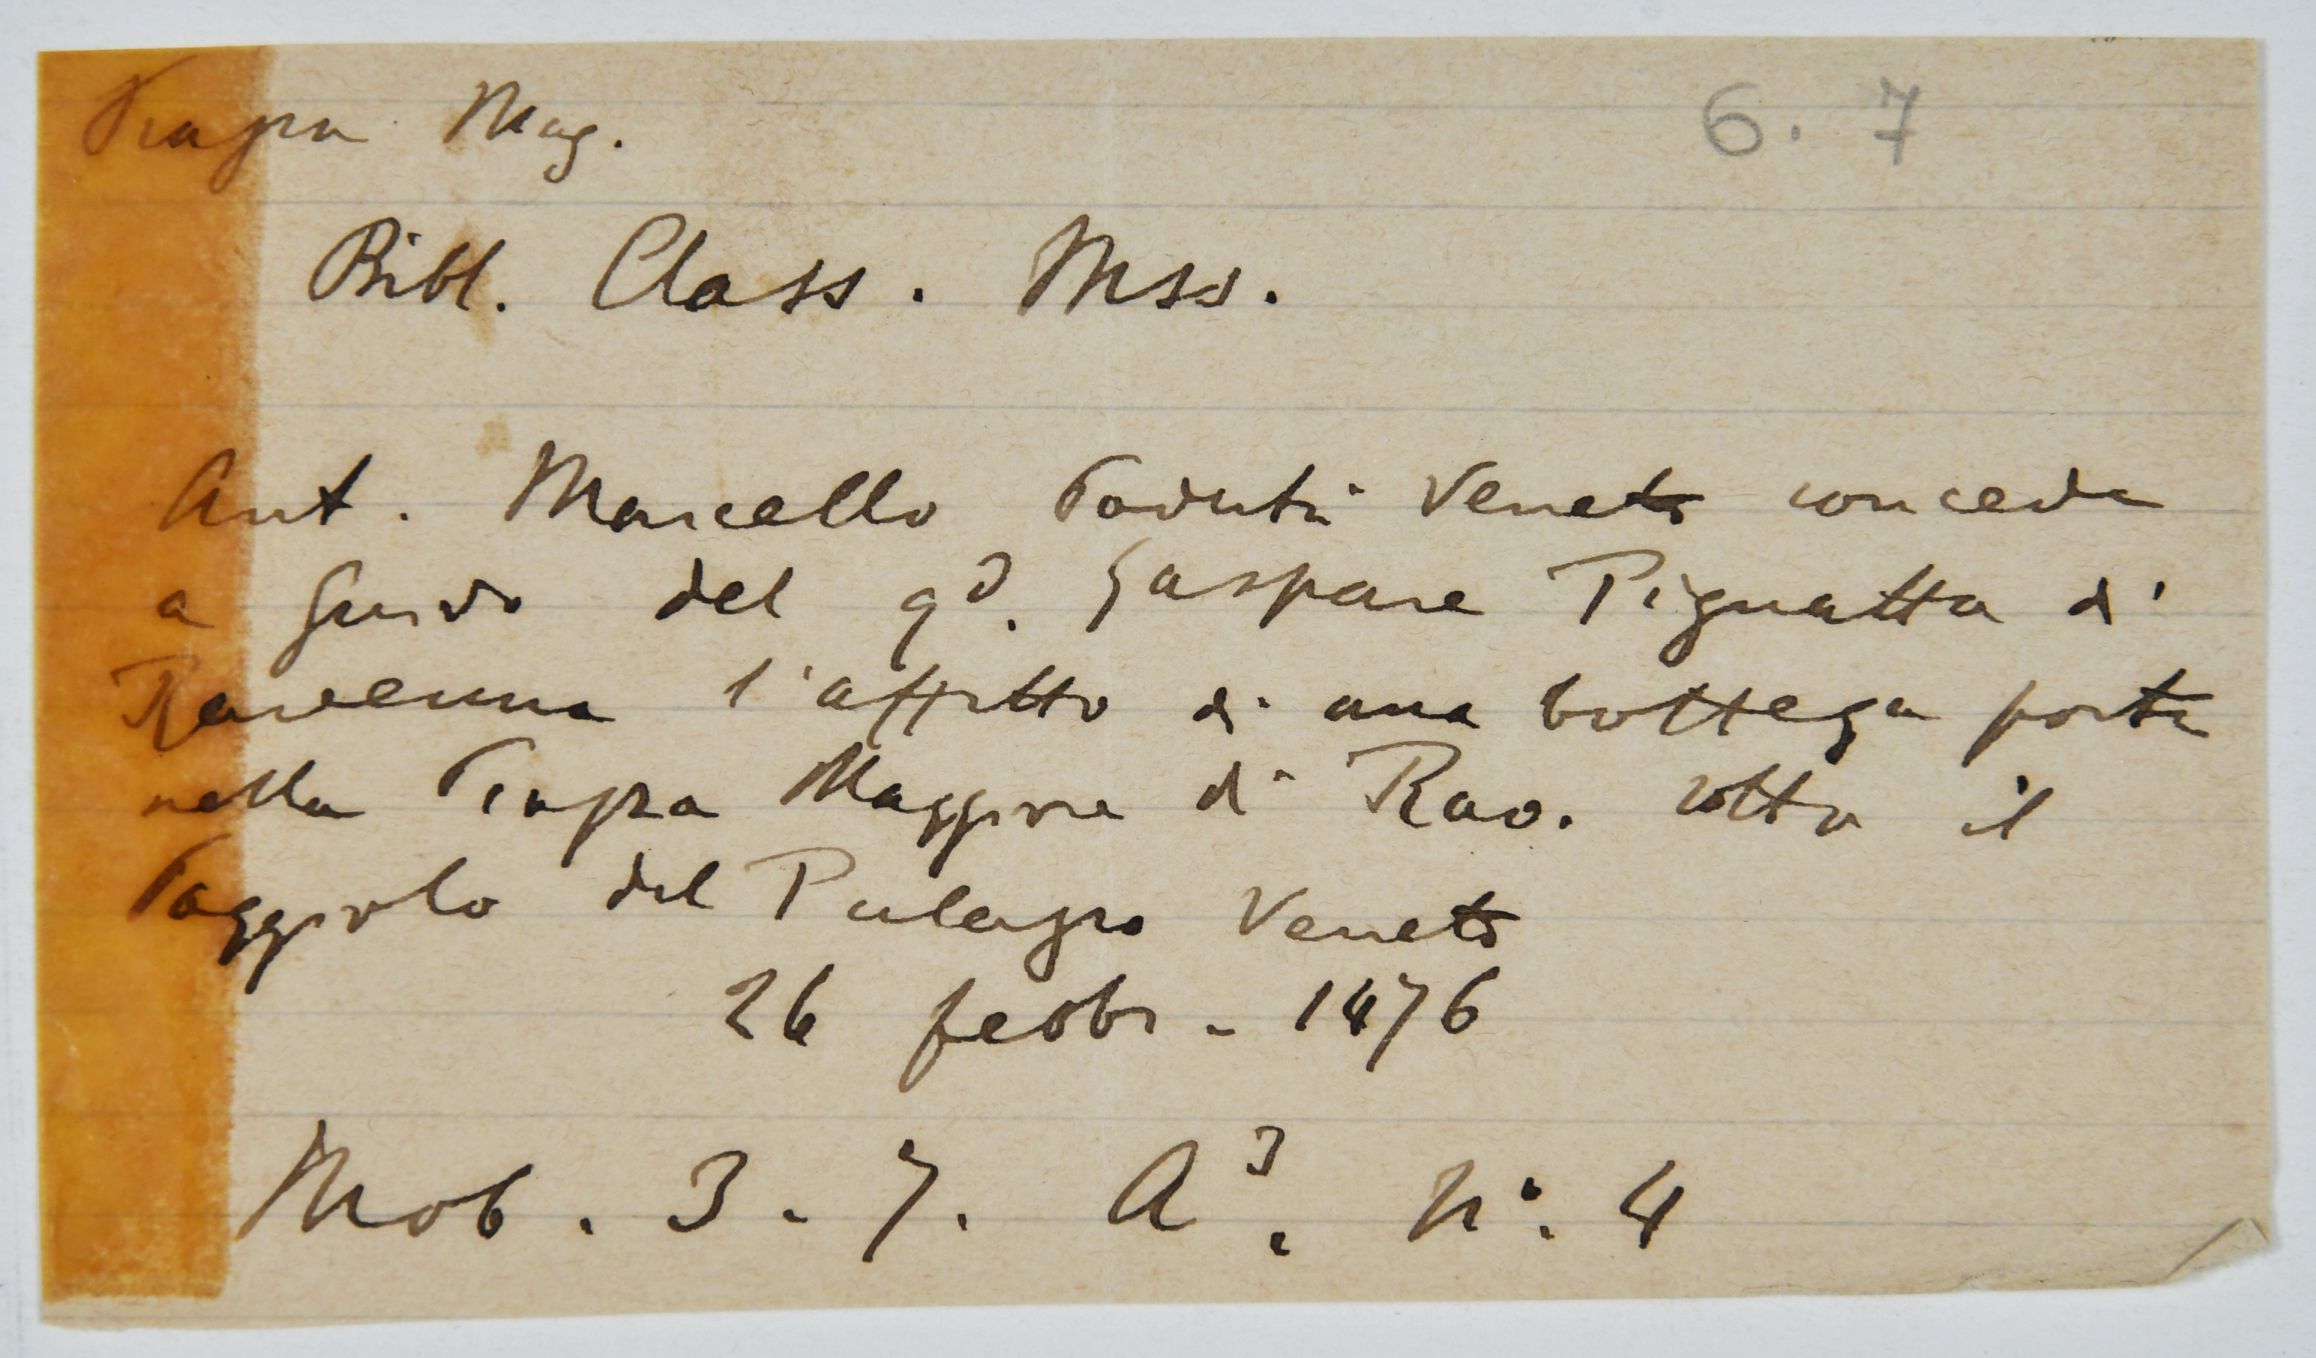 Piazza Mag. 6. 7
Bibl. Class. Mss.
Ant. Marcello Podestà Veneto concede
a Guido del qd. Gaspare Pignatta di
Ravenna l'affitto di una bottega posta
nella Piazza Maggiore di Rav. sotto il
Poggiolo del Palazzo Veneto
26 febbr - 1476
Mob. 3 - 7. A3. N°. 4